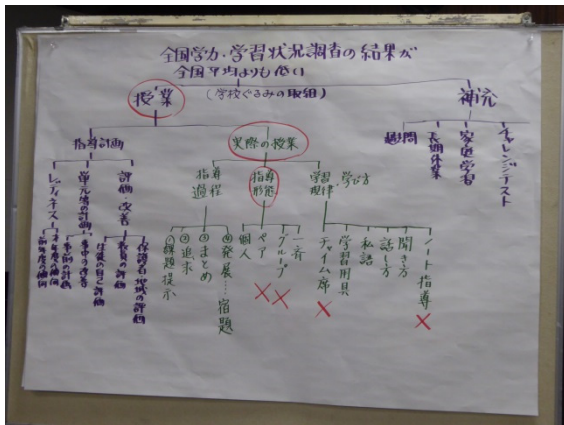 全国学力・学習状況調査の結果が
全国平均よりも低い
(学校ぐるみの取組)
授業
補充
指導計画
実際の授業
長期休業
家庭学習
チャレンジテスト
レディネス
単元等の計画
評価・改善
指導過程
指導形態
学習規律・学び方
前年度の傾向
本年度の傾向
事前の計画
事中の改善
生徒の自己評価
教員の評価
保護者・地域の評価
①課題提示
②追求
③まとめ
④発展……宿題
個人
ペア
グループ
一斉
チャイム席
学習用具
私語
話し方
聞き方
ノート指導